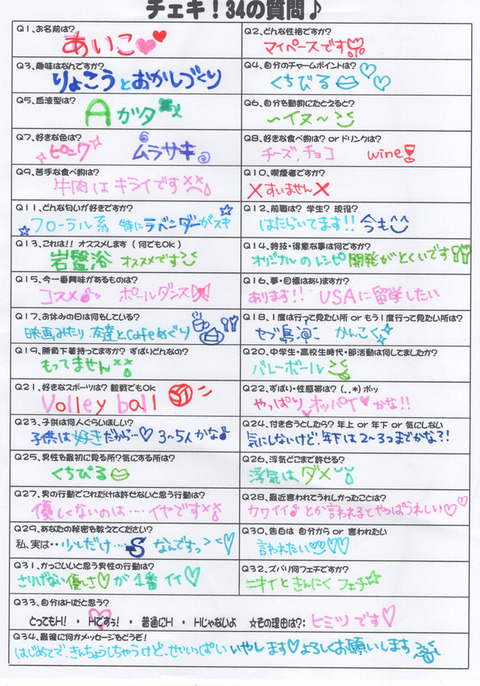 チェキ！34の質問♪
Q1. お名前は?
あいこ♡♡
Q2. どんな性格ですか?
マイペースです
Q3. 趣味はなんですか?
りょこうとおかしづくり
Q4. 自分のチャームポイントは?
くちびる
Q5. 血液型は?
Aがタ
Q6. 自分も動物にたとえると?
〜イヌ〜
Q7. 好きな色は?
ピンク ムラサキ
Q8. 好きな食べ物は? or ドリンクは?
チーズ,チョコ wine
Q9. 苦手な食べ物は?
牛肉はキライです
Q10. 喫煙者ですか?
×すいません×
Q11. どんな匂いが好きですか?
フローラル系 特にラベンダーがスキ
Q12. 前職は? 学生? 現役?
はたらいてます!! 今も
Q13. これは!! オススメします (何でもOk)
岩盤浴 オススメです
Q14. 特技・得意な事は何ですか?
オリジナルのレシピ開発がとくいです
Q15. 今一番興味があるものは?
コスメ ポールダンス
Q16. 夢・目標はありますか?
あります!! USAに留学したい
Q17. お休みの日は何もしている?
映画みたり 友達とCafeめぐり
Q18. 1度は行って見たい所 or もう1度行って見たい所は?
セブ島 かんこく
Q19. 勝負下着持ってますか? ずばりどんなの?
もってません
Q20. 中学生・高校生時代・部活動は何してましたか?
バレーボール
Q21. 好きなスポーツは? 観戦でもOk
Volley ball
Q22. ずばり・性感帯は? (..*) ポッ
やっぱりオッパイかな!!
Q23. 子供は何人ぐらいほしい?
子供は好きだから…♡ 3〜5人かな
Q24. 付き合うとしたら? 年上 or 年下 or 気にしない
気にしないけど、年下は2〜3つまでかな?!
Q25. 男性も最初に見る所? 気にする所は?
くちびる
Q26. 浮気どこまで許せる?
浮気はダメ
Q27. 男の行動でこれだけは許せないと思う行動は?
優しくないのは…イヤです
Q28. 最近言われてうれしかったことは?
カワイイ♪とか言われるとやっぱうれしい♡
Q29. あなたの秘密も教えてください?
私、実は・・少しだけ…Sなんですっ
Q30. 告白は 自分から or 言われたい
言われたい
Q31. かっこいいと思う男性の行動は?
さりげない優しさ♡が1番イイ♡
Q32. ズバリ何フェチですか?
ニオイときんにくフェチ☆
Q33. 自分はHだと思う?
とってもH!・Hですぅ!・普通にH・Hじゃないよ ☆その理由は?: ヒミツです♡
Q34. 最後に何かメッセージもどうぞ!
はじめてで、きんちょうしちゃうけど、せいいっぱいいやします♡よろしくお願いします